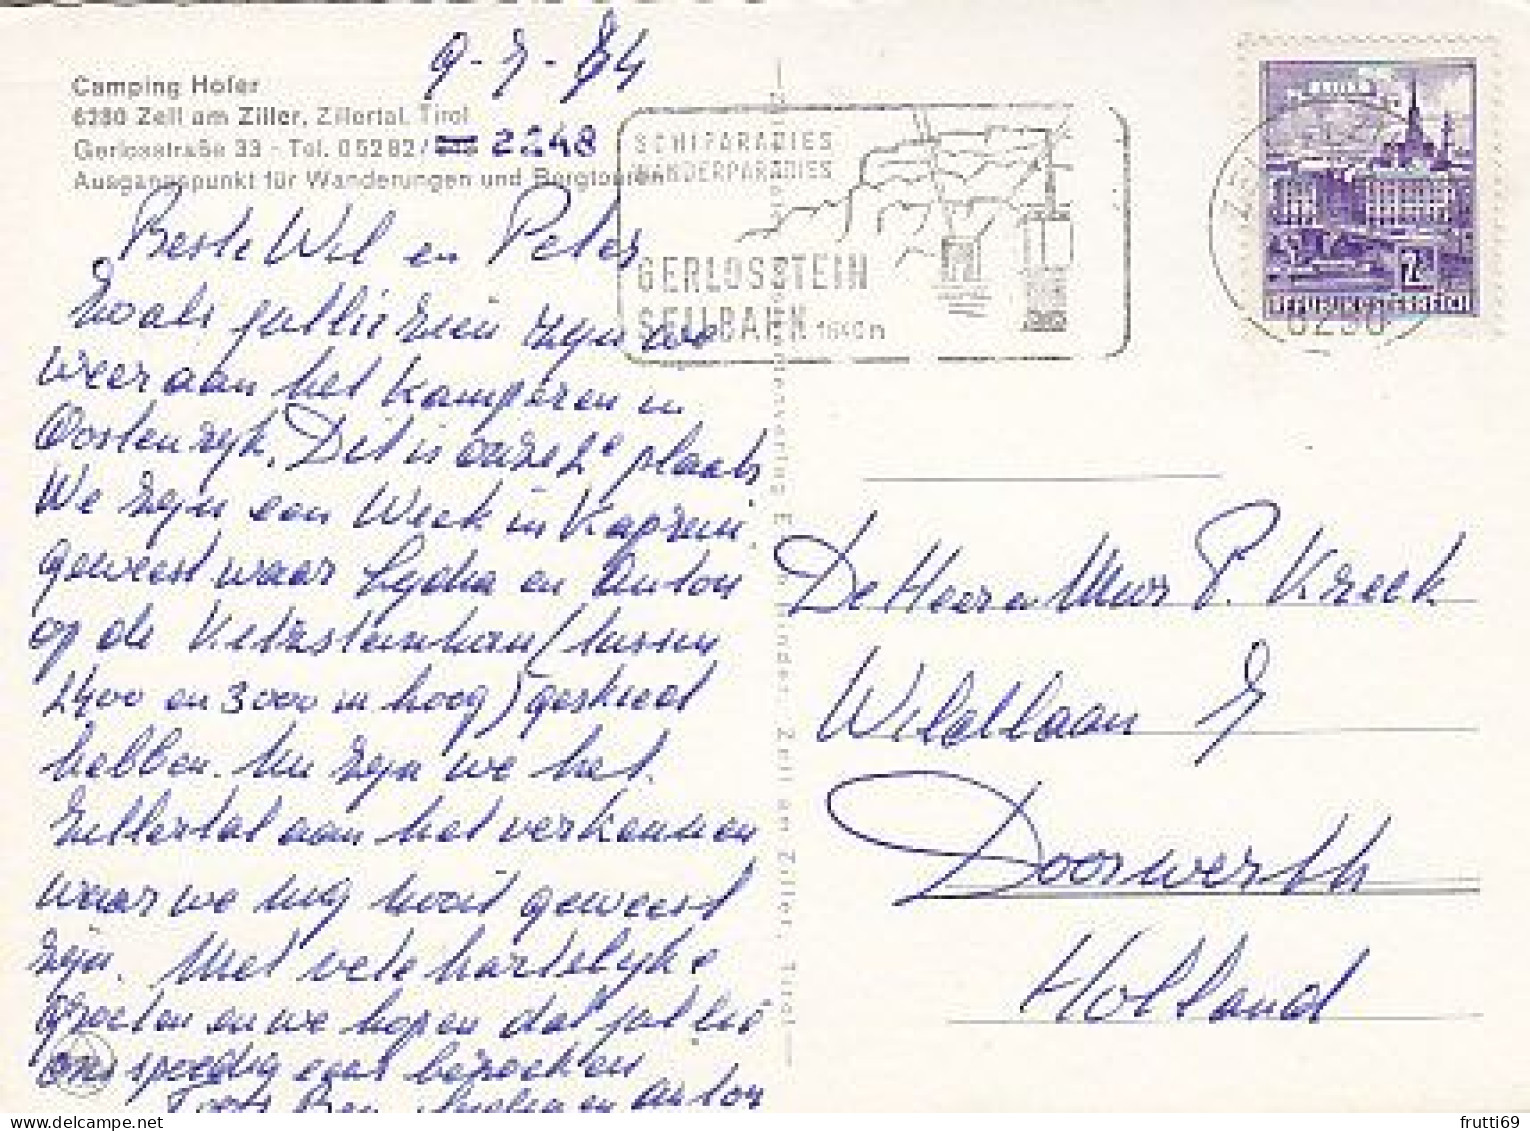 9-7-74
Camping Hofer
6280 Zell am Ziller, Zillertal, Tirol
Gerlosstraße 33 - Tel. 05282/ 2248
Ausgangspunkt für Wanderungen und Bergtouren
SCHIPARADIES
WANDERPARADIES
GERLOSSTEIN
SEILBAHN 1640m
6280
Beste Wil en Peter
Zoals jullie zien zijn we
weer aan het kamperen in
Oostenrijk. Dit is onze 2e plaats
We zijn een Week in Kaprun
geweest waar Lydia en Anton
op de Kitzsteinhorn (tussen
2400 en 3000 m hoog) geskied
hebben. Nu zijn we het
Zillertal aan het verkennen
waar we nog nooit geweest
zijn. Met vele hartelijke
groeten en we hopen dat jullie
ons spoedig eens bezoeken
Toots Ben Lydia en Anton
De Heer en Mevr P. Kreek
Wildlaan 7
Doorwerth
Holland
frutti69